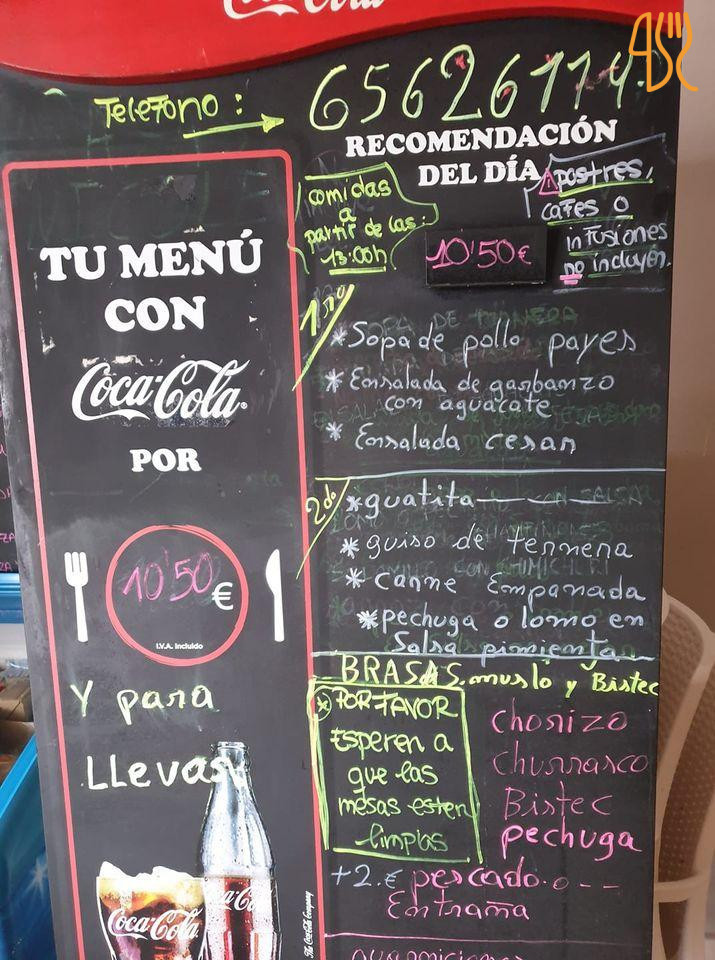 Coca-Cola
TELEFONO :
RECOMENDACIÓN
DEL DÍA
comidas
a
partir de las:
13:00h
postres,
cafes o
infusiones
no incluyen.
10'50€
TU MENÚ
CON
Coca-Cola
POR
10'50 €
I.V.A. Incluido
Y para
LLevar
1ro
* Sopa de pollo payes
* Ensalada de garbanzo
con aguacate
* Ensalada cesar
2do
* guatita
* guiso de ternera
* carne Empanada
* pechuga o lomo en
Salsa pimienta
BRASAS. muslo y Bistec
* POR FAVOR
Esperen a
que las
mesas esten
limpias
chorizo
churrasco
Bistec
pechuga
+2.€ pescado. o ---
Entraña
Coca-Cola
The Coca-Cola Company